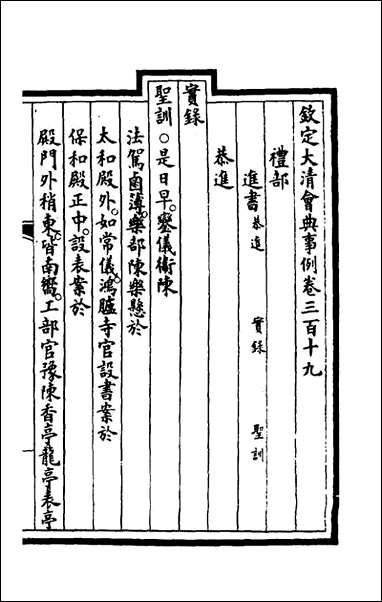 欽定大清會典事例卷三百十九
禮部
進書恭進　實錄　聖訓
恭進
實錄
聖訓○是日早。鑾儀衞陳
法駕鹵簿。樂部陳樂懸於
太和殿外。如常儀。鴻臚寺官設書案於
保和殿正中。設表案於
殿門外稍東。皆南嚮。工部官豫陳香亭龍亭表亭